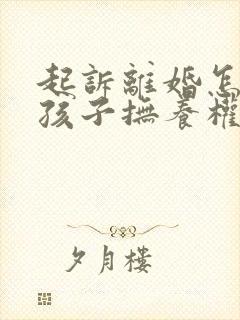 起訴離婚怎
孩子撫養權
夕月樓